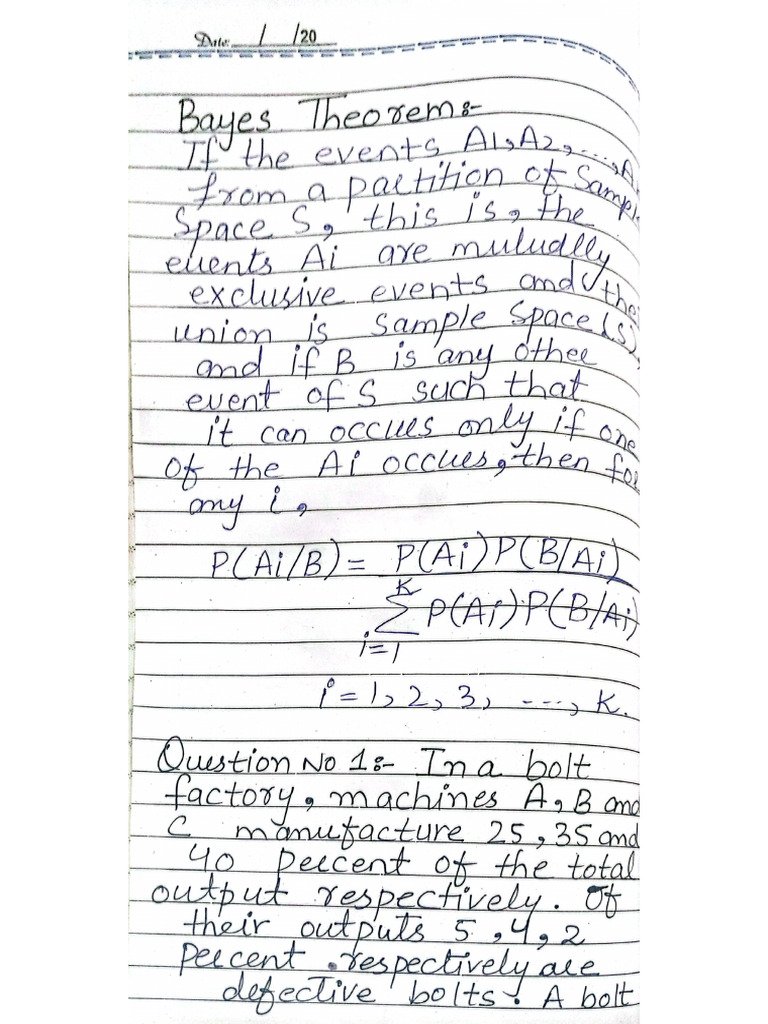 Date: / /20
Bayes Theorem:-
If the events A1, A2, ..., A
from a partition of Sampl
Space S, this is, the
events Ai are muludlly
exclusive events and the
union is sample space(s),
and if B is any other
event of S such that
it can occurs only if one
of the Ai occurs, then for
any i,
P(Ai/B) = P(Ai) P(B/Ai)
K
Σ P(Ai) P(B/Ai)
i=1
i = 1, 2, 3, ---, K.
Question No 1:- In a bolt
factory, machines A, B and
C manufacture 25, 35 and
40 percent of the total
output respectively. Of
their outputs 5, 4, 2
percent respectively are
defective bolts. A bolt